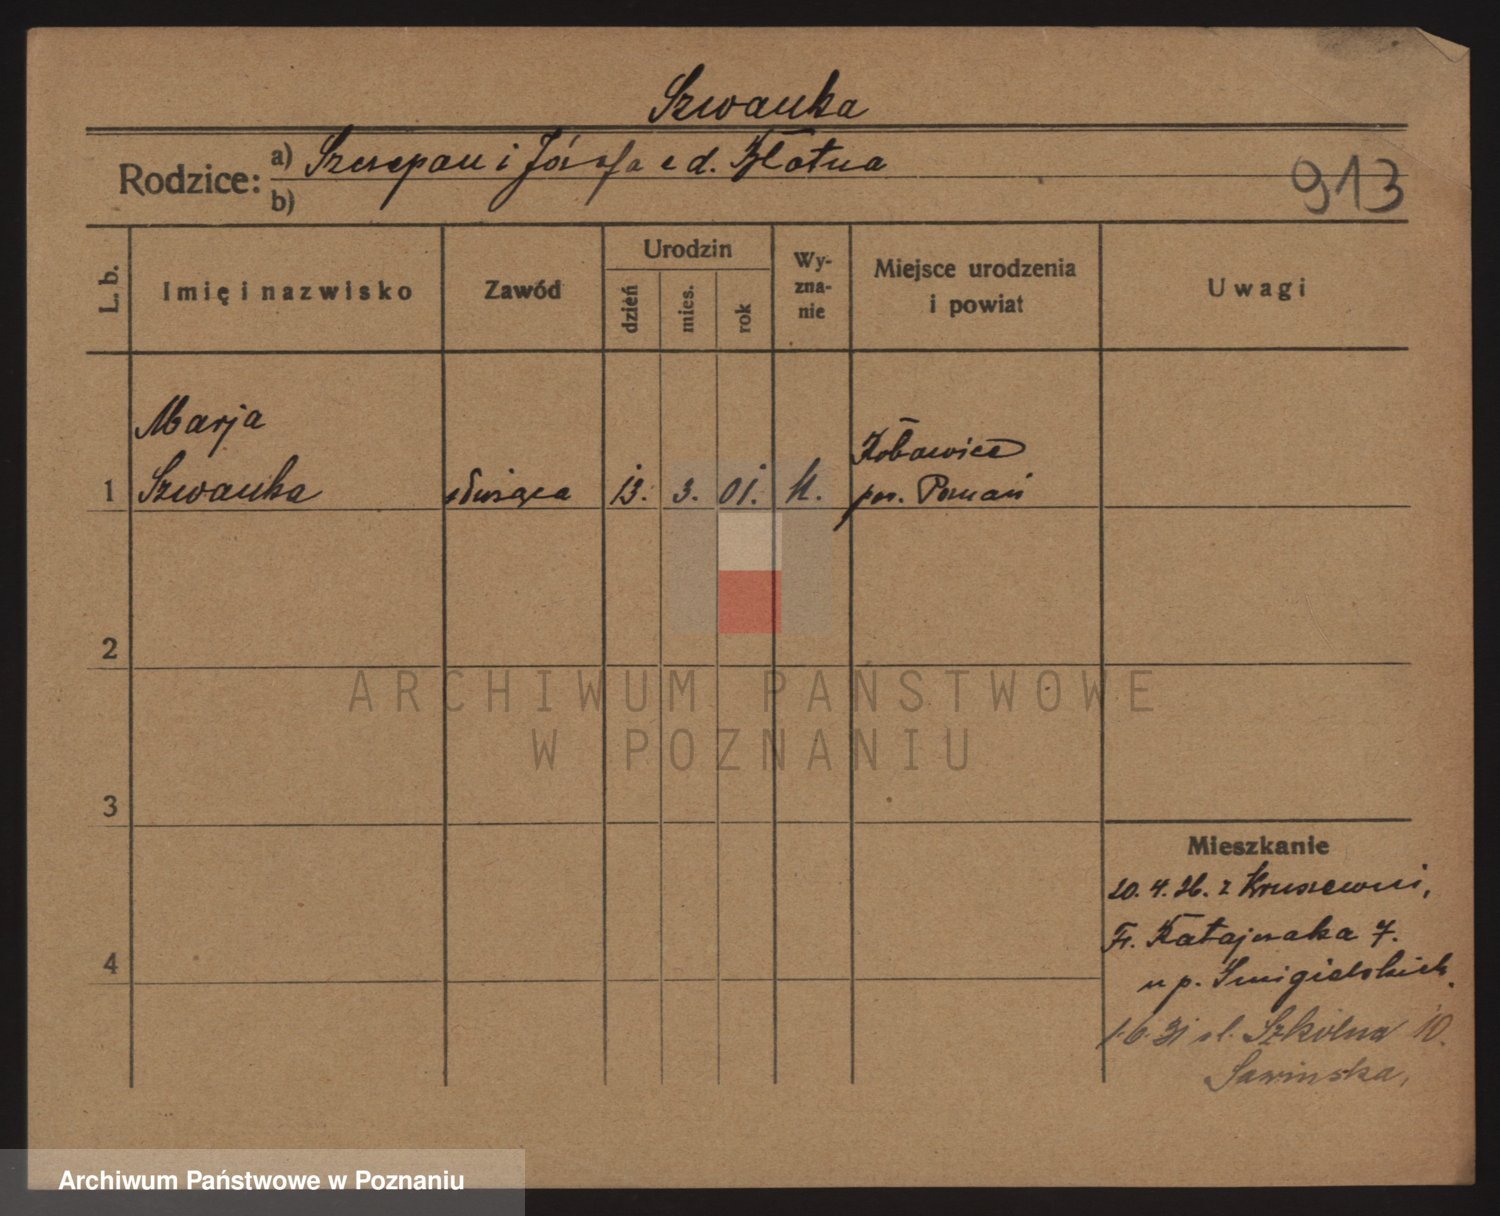 Szwanka
Rodzice: a) Szczepan i Józefa z d. Błotna
b)
913
L. b.
Imię i nazwisko
Zawód
Urodzin
dzień
mies.
rok
Wy-
zna-
nie
Miejsce urodzenia
i powiat
Uwagi
1
Marja
Szwanka
służąca
13. 3. 01. k.
pow. Poznań
2
3
4
Mieszkanie
20. 4. 26. z
Fr. Ratajczaka 7.
u p. Smigielskich.
1.6.31 ul. Szkolna 10.
Sawinska,
ARCHIWUM PAŃSTWOWE
W POZNANIU
Archiwum Państwowe w Poznaniu